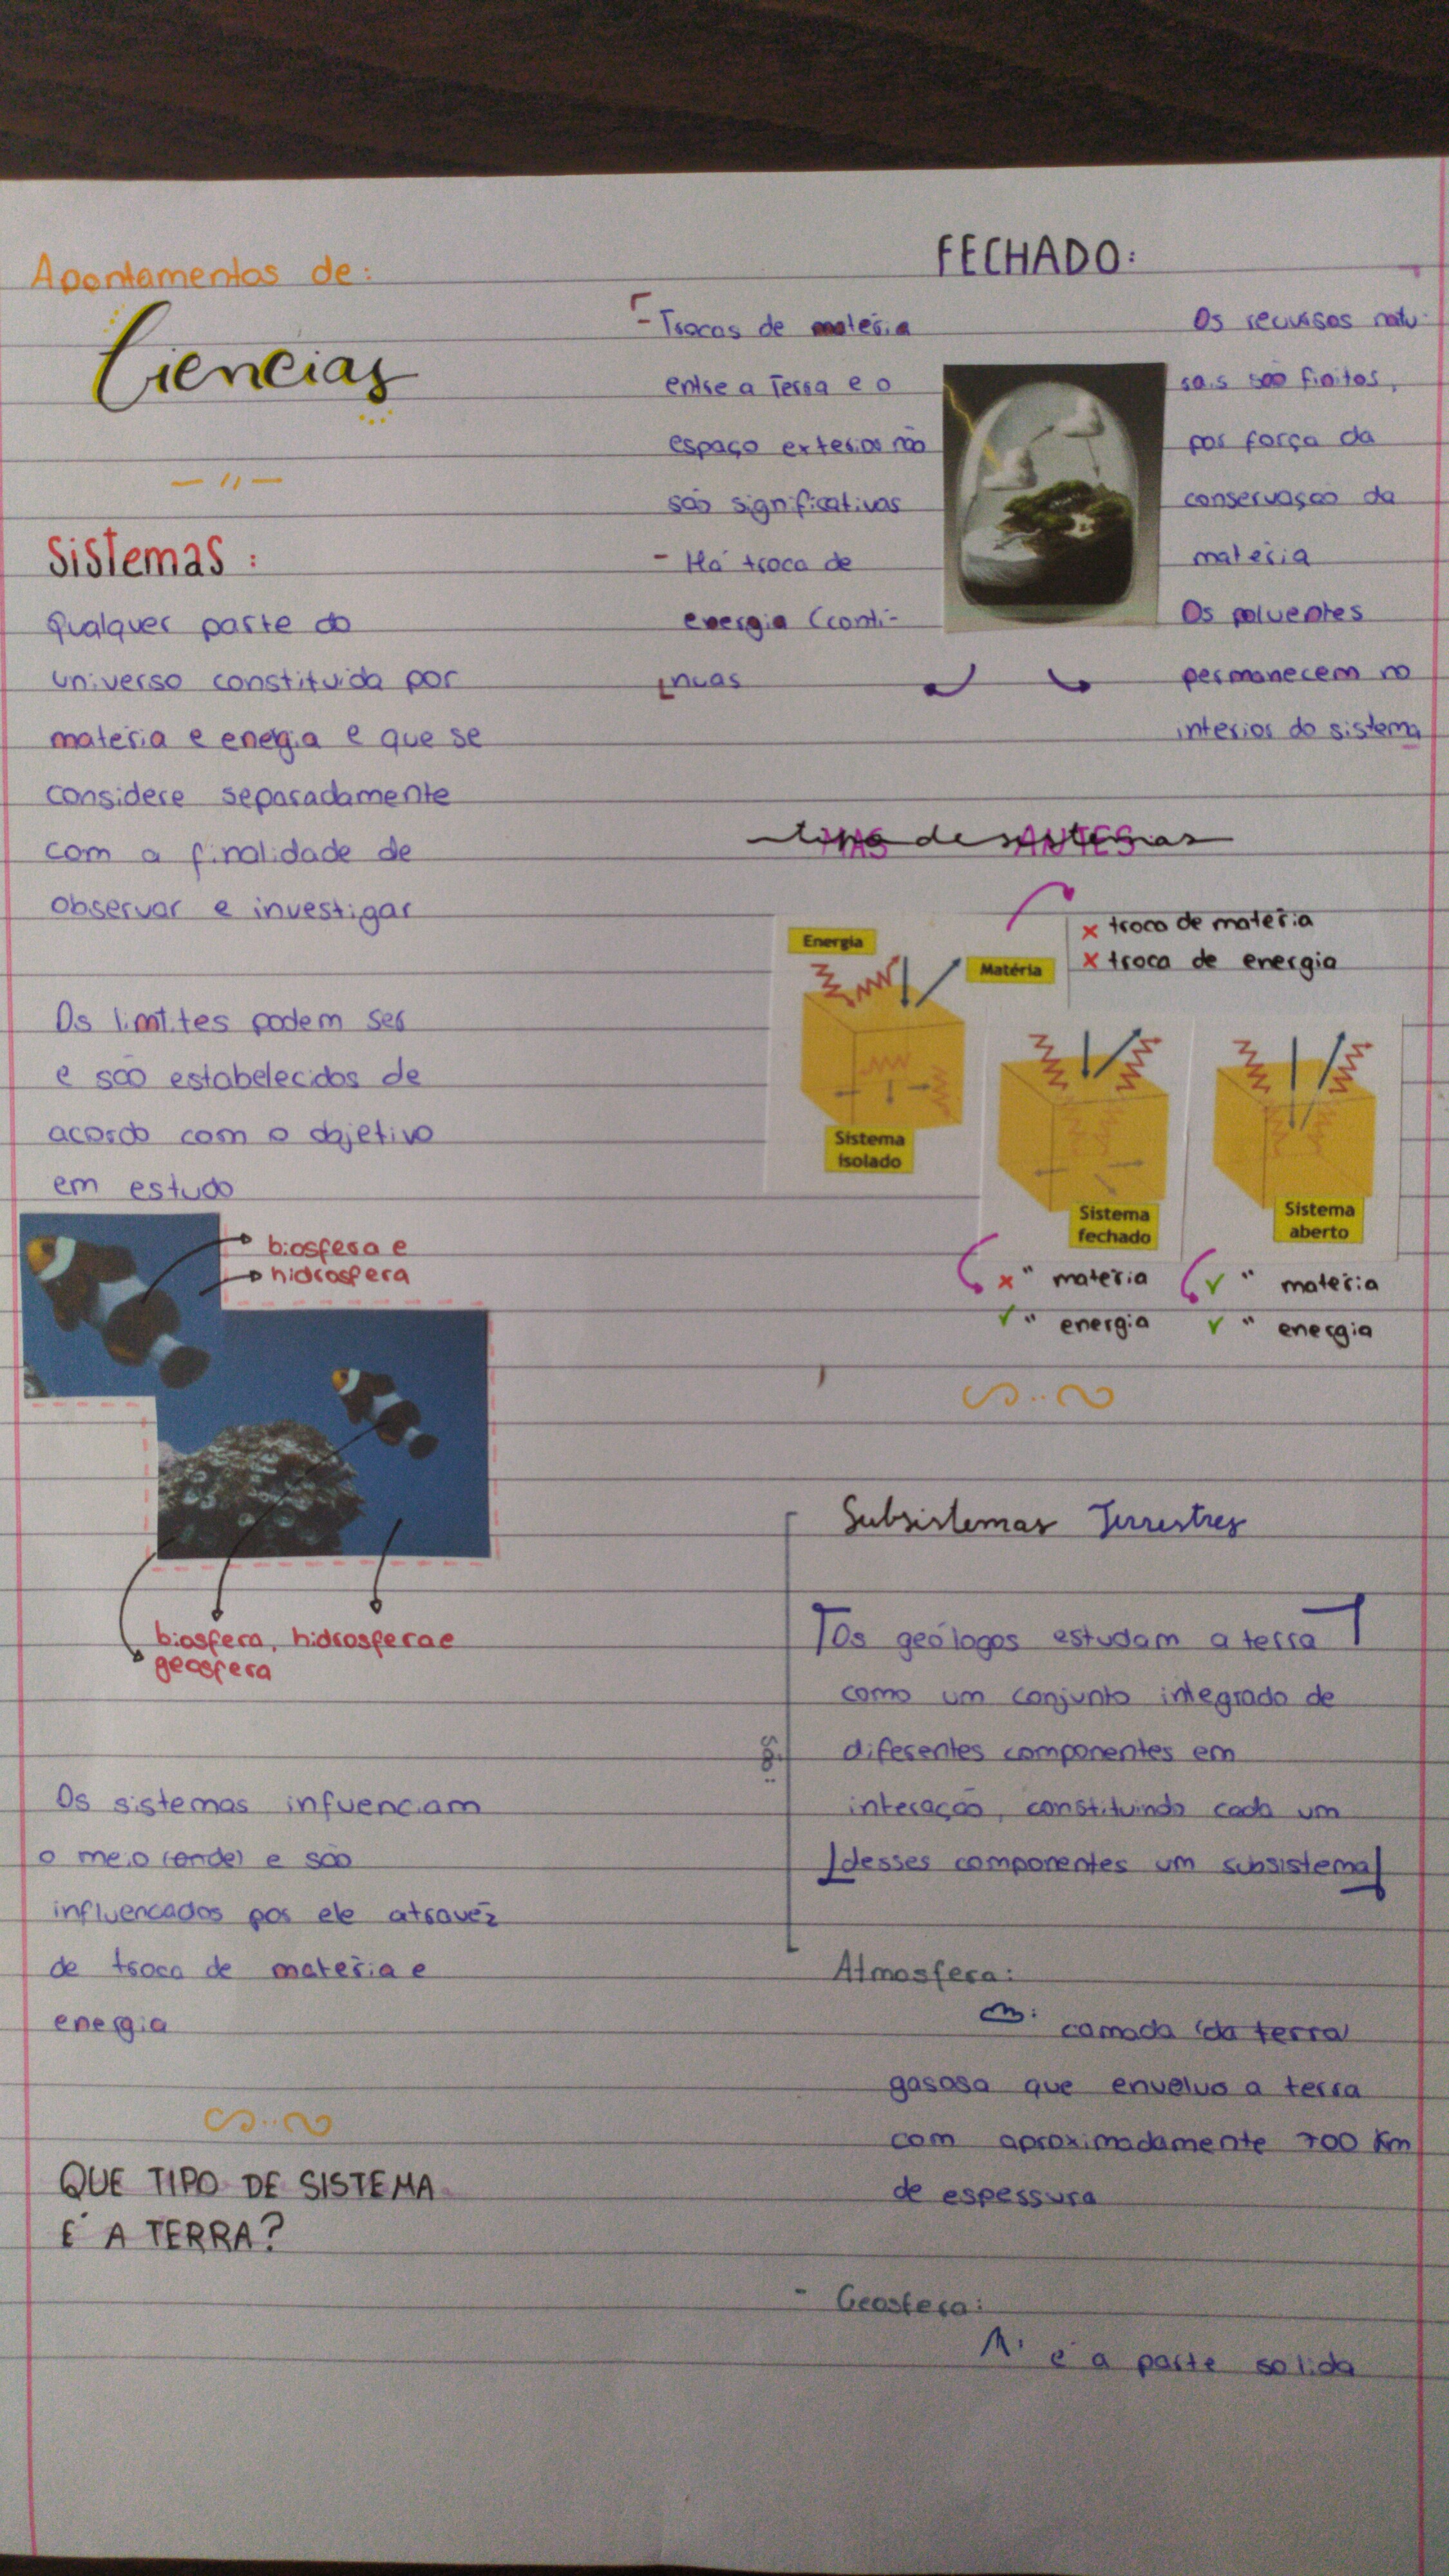 Apontamentos de:
Ciencias
— ıı —
Sistemas :
Qualquer parte do
universo constituida por
materia e energia e que se
considere separadamente
com a finalidade de
observar e investigar
Os limites podem ser
e são estabelecidos de
acordo com o objetivo
em estudo
biosfera e
hidrosfera
biosfera, hidrosfera e
geosfera
Os sistemas infuenciam
o meio (onde) e são
influencados por ele atravez
de troca de materia e
energia
QUE TIPO DE SISTEMA
É A TERRA?
FECHADO:
- Trocas de materia
entre a Terra e o
espaço exterior não
são significativas
- Há troca de
energia (conti-
nuas
Os recursos natu-
rais são finitos,
por força da
conservação da
materia
Os poluentes
permanecem no
interior do sistema
tipo de sistemas
x troca de materia
x troca de energia
Energia
Matéria
Sistema
isolado
Sistema
fechado
Sistema
aberto
x " materia
✓ " energia
✓ " materia
✓ " energia
Subsistemas Terrestres
Os geólogos estudam a terra
como um conjunto integrado de
diferentes componentes em
interação, constituindo cada um
desses componentes um subsistema
Atmosfera:
camada (da terra)
gasosa que envolve a terra
com aproximadamente 700 km
de espessura
- Geosfera:
é a parte solida